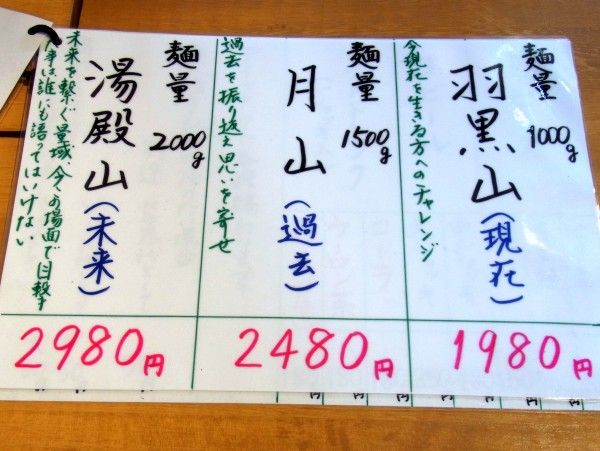 麺量 1000g
羽黒山(現在)
今現在を生きる方へのチャレンジ
1980円
麺量 1500g
月山(過去)
過去を振り返え思いを寄せ
2480円
麺量 2000g
湯殿山(未来)
未来を繋ぐ量域、今々の場面で目撃す
事は誰にも語ってはいけない
2980円
円
円
円
円
円
円